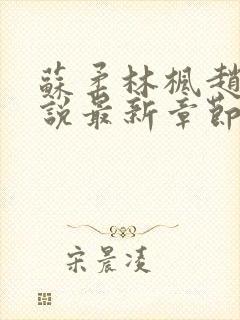 蘇柔林楓趙
說最新章節
宋晨凌